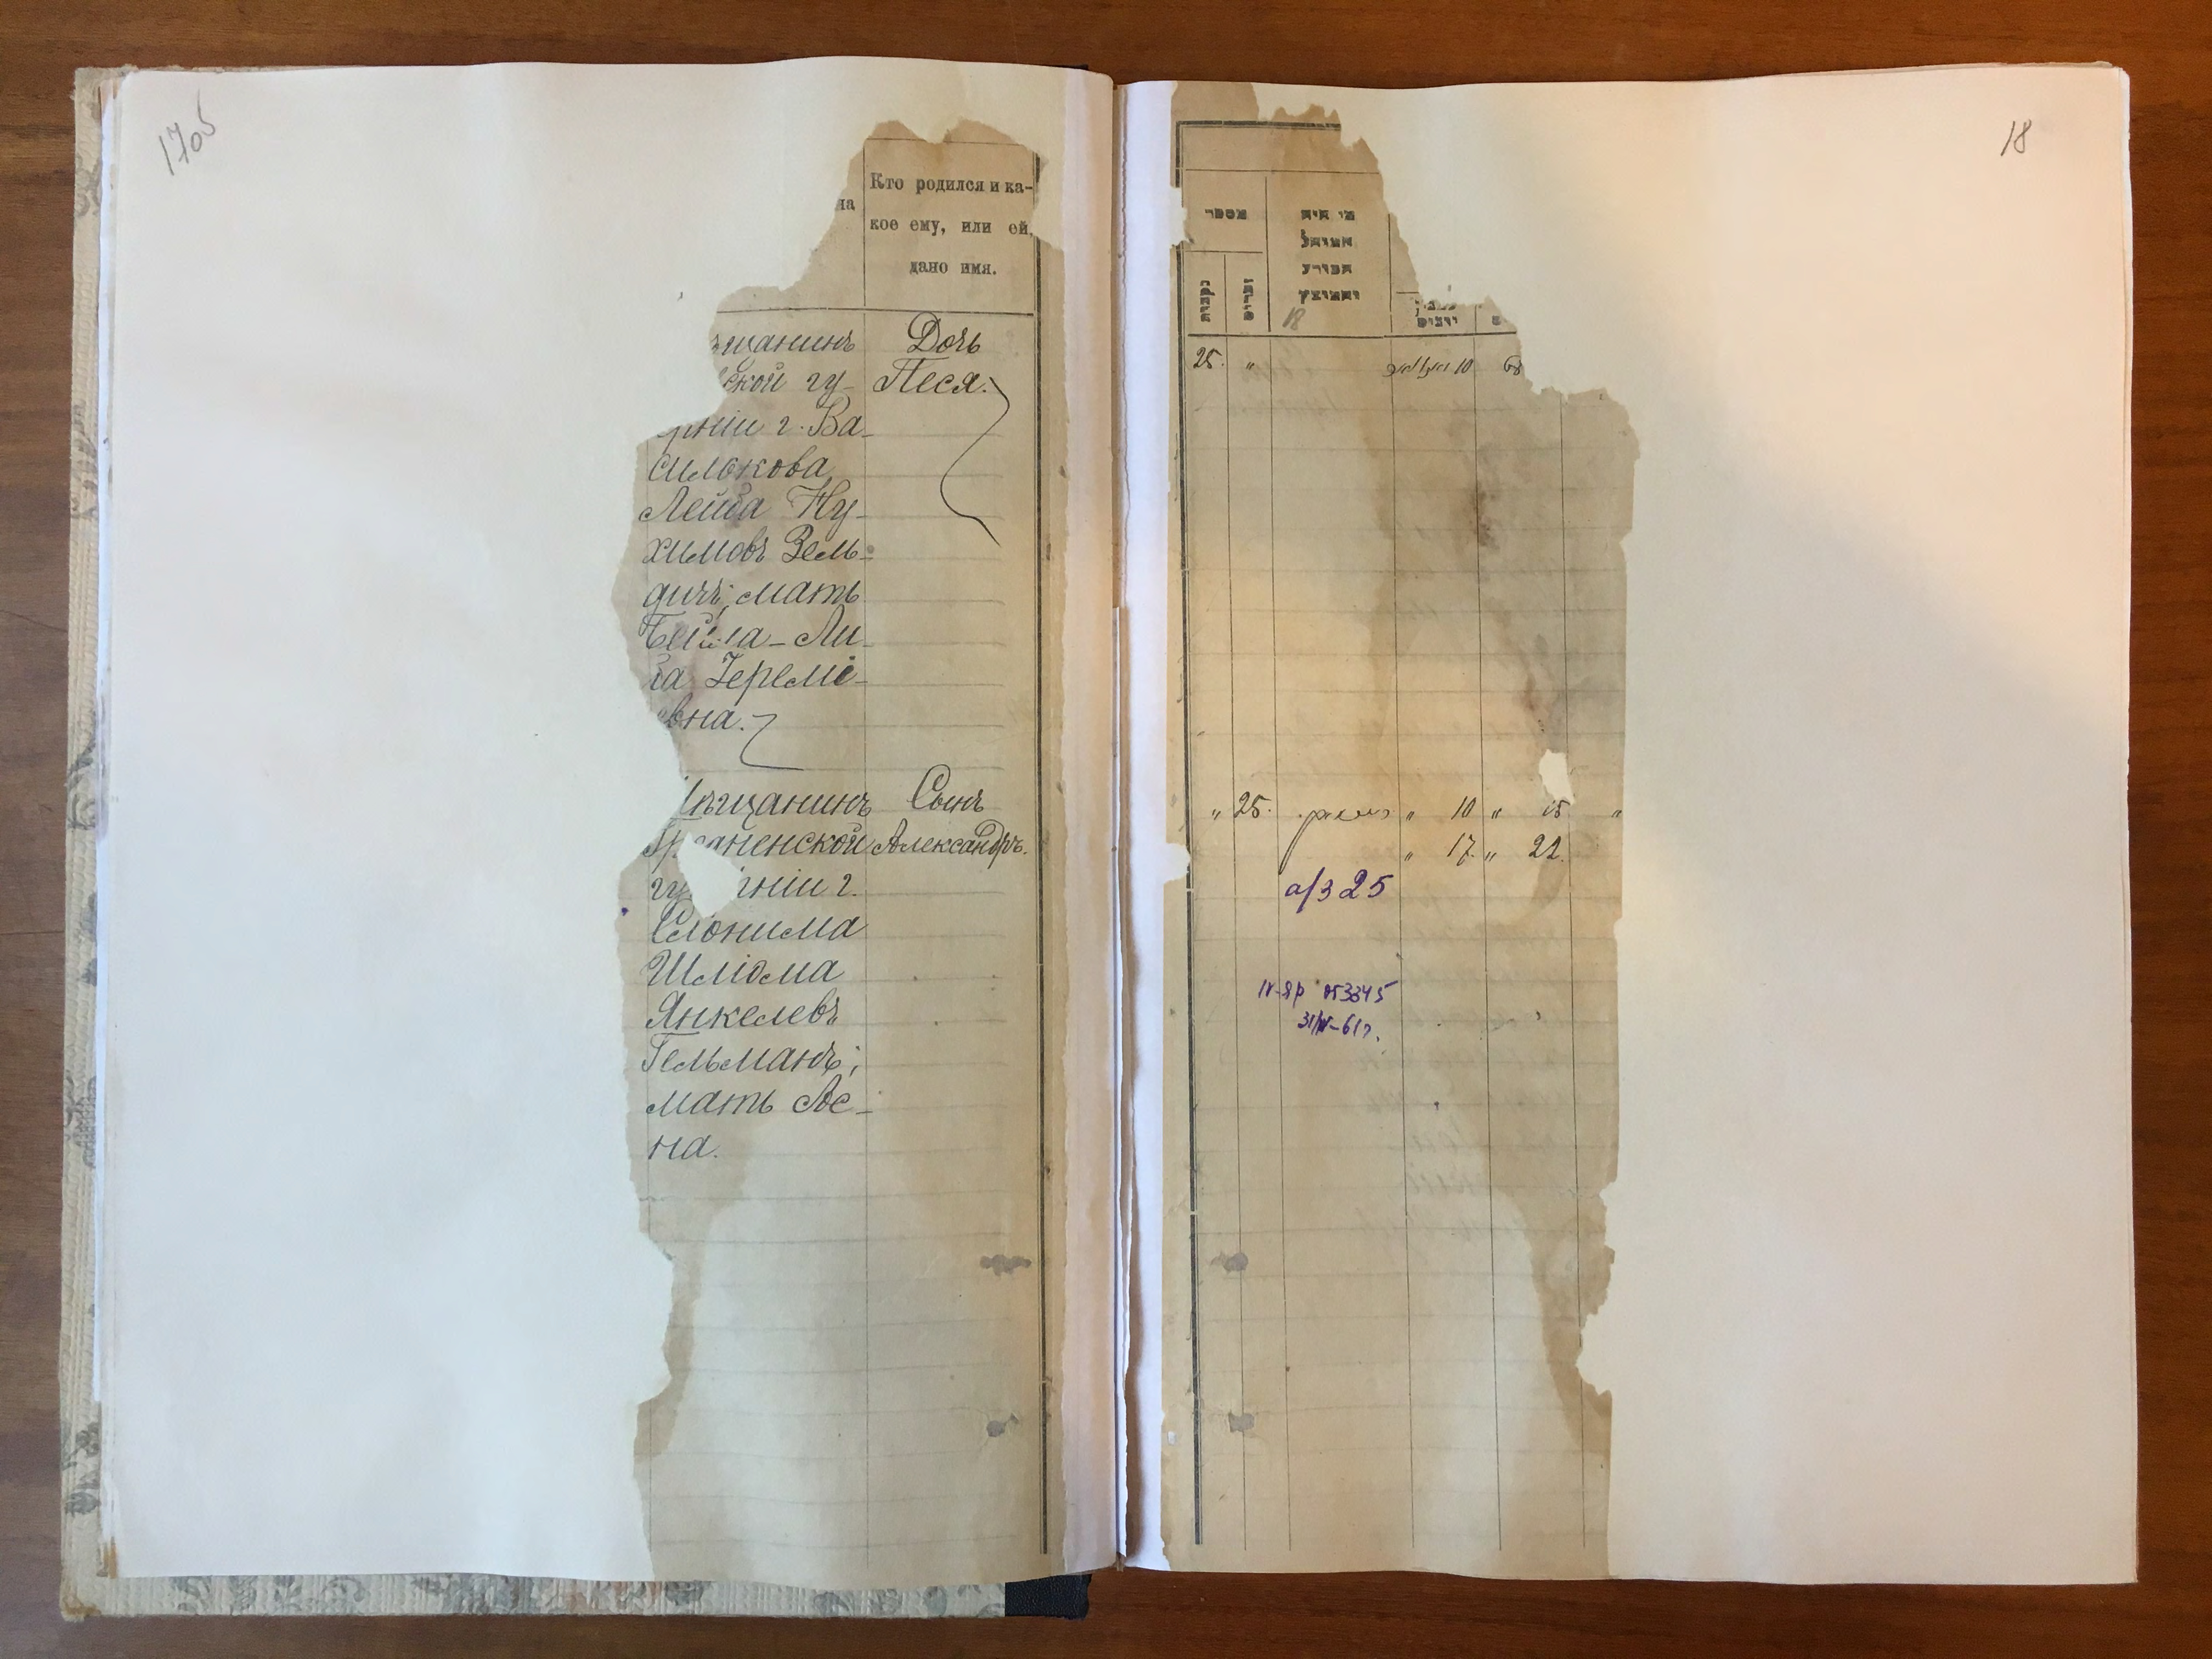 17об
на
Кто родился и ка-
кое ему, или ей,
дано имя.
щанинъ
ской гу-
рніи г. Ва-
силькова
Лейба Ну-
химовъ Зель-
дичъ; мать
Бейла-Ли-
за Іереміе-
вна.
Дочь
Песя.
мѣщанинъ
Гродненской
гу рніи г.
Слонима
Шліома
Янкелевъ
Гельманъ;
мать Ас-
на.
Сынъ
Александръ.
18
מספר
נקבות
זכרים
מי היה
המוהל
הפורע
והמוצץ
18
יונים
25. „
10
68
„ 25.
„ 10 „ 15 „
„ 17 „ 22.
а/з 25
IV-ЯР 053345
31/IV-61г.